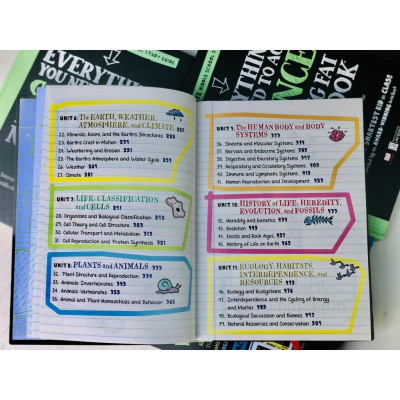 STUDY GUIDE
EVERYTHING
YOU NEED
UNIT 6: The EARTH, WEATHER,
ATMOSPHERE, and CLIMATE 227
22. Minerals, Rocks, and the Earth's Structure 228
23. Earth's Crust in Motion 239
24. Weathering and Erosion 251
25. The Earth's Atmosphere and Water Cycle 259
26. Weather 269
27. Climate 281
UNIT 7: LIFE: CLASSIFICATION
and CELLS 291
28. Organisms and Biological Classification 292
29. Cell Theory and Cell Structure 303
30. Cellular Transport and Metabolism 313
31. Cell Reproduction and Protein Synthesis 321
UNIT 8: PLANTS and ANIMALS 333
32. Plant Structure and Reproduction 334
33. Animals: Invertebrates 345
34. Animals: Vertebrates 355
35. Animal and Plant Homeostasis and Behavior 363
UNIT 9: The HUMAN BODY and BODY
SYSTEMS 373
36. Skeletal and Muscular Systems 374
37. Nervous and Endocrine Systems 383
38. Digestive and Excretory Systems 397
39. Respiratory and Circulatory Systems 405
40. Immune and Lymphatic Systems 415
41. Human Reproduction and Development 427
UNIT 10: HISTORY of LIFE: HEREDITY,
EVOLUTION, and FOSSILS 437
42. Heredity and Genetics
43. Evolution
44. Fossils and Rock Ages
45. History of Life on Earth 465
UNIT 11: ECOLOGY: HABITATS,
INTERDEPENDENCE, and
RESOURCES 475
46. Ecology and Ecosystems 476
47. Interdependence and the Cycling of Energy
and Matter 485
48. Ecological Succession and Biomes 497
49. Natural Resources and Conservation 509
MIDDLE SCHOOL
BIG FAT
SMARTEST KID in CLASS
AWARD-WINNING